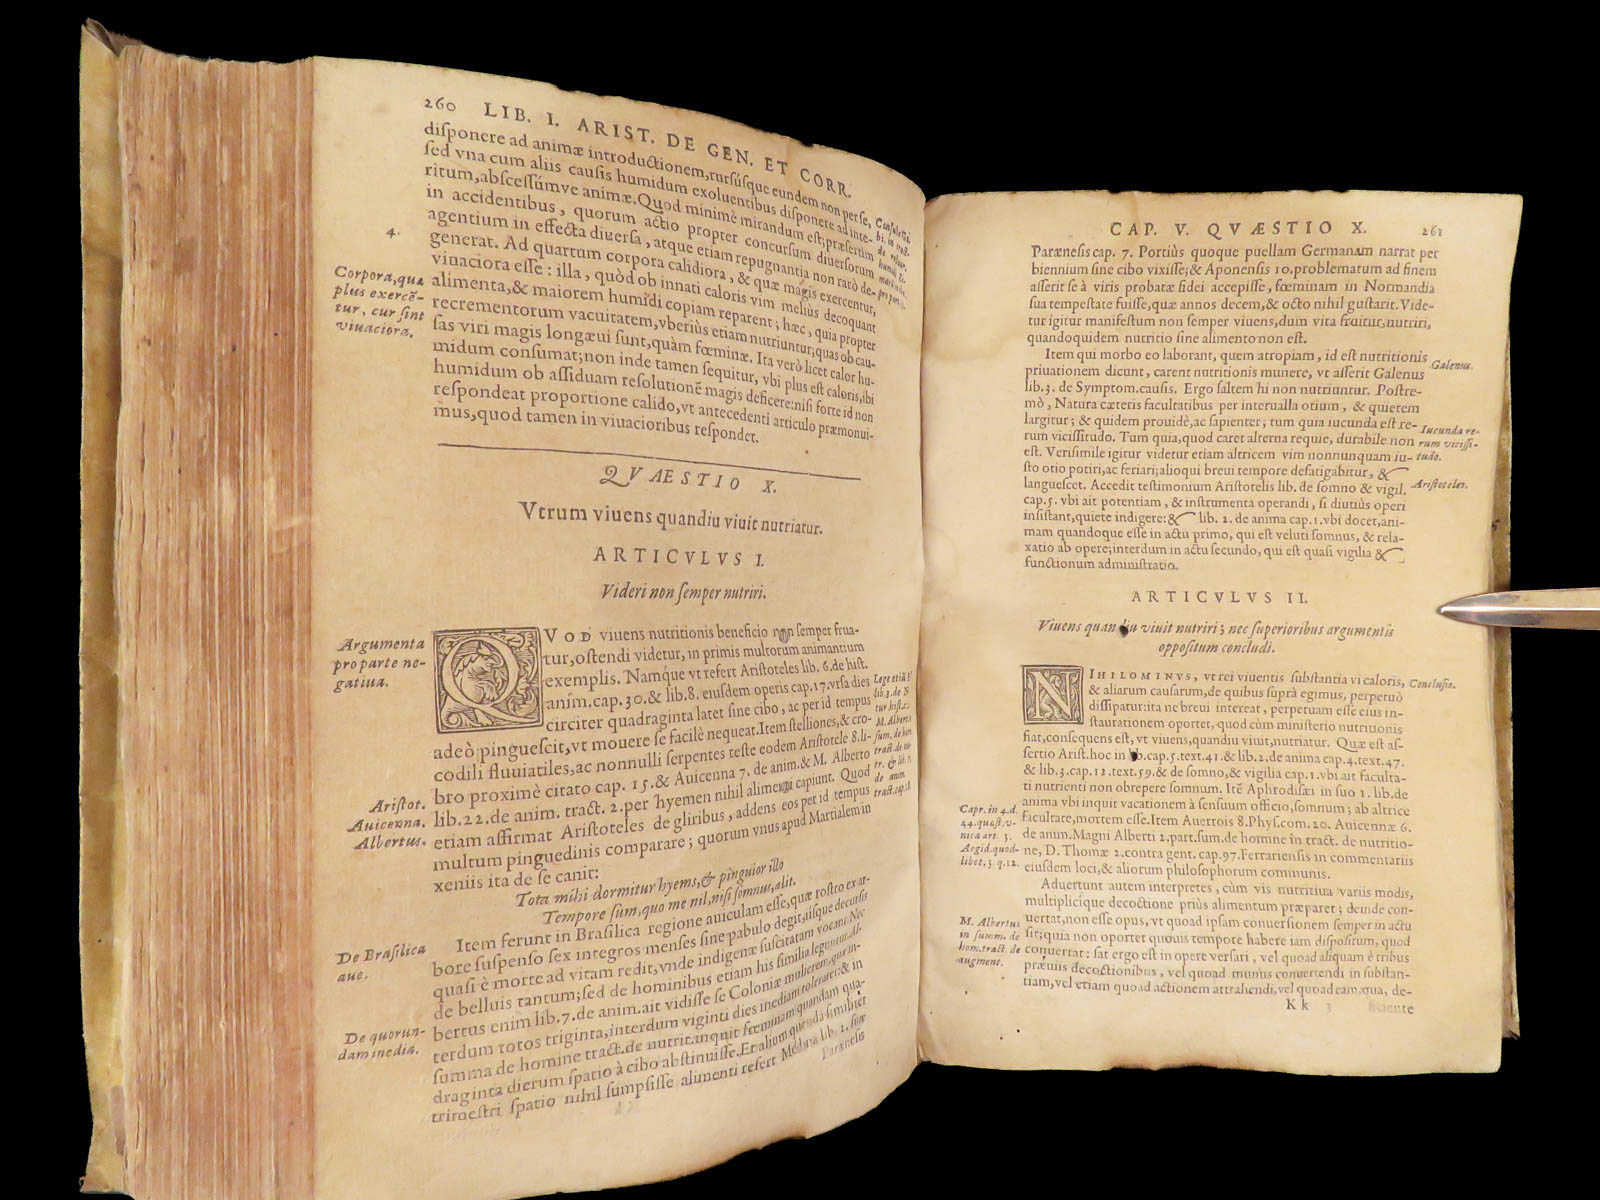 260 LIB. I. ARIST. DE GEN. ET CORR.
diſponere ad animæ introductionem, rurſúſque eundem non per ſe,
ſed vna cum aliis cauſis humidum exoluentibus diſponere ad inte-
ritum, abſceſſúmve animæ. Quod minimè mirandum eſt; præſertim
in accidentibus, quorum actio propter concurſum diuerſorum
agentium in effecta diuerſa, atque etiam repugnantia non rarò de-
4.
generat. Ad quartum corpora calidiora, & quæ magis exercentur,
Corpora, quæ
plus exercē-
tur, cur ſint
viuaciora.
viuaciora eſſe: illa, quòd ob innati caloris vim meliùs decoquant
alimenta, & maiorem humidi copiam reparent; hæc, quia propter
recrementorum vacuitatem, vberiùs etiam nutriuntur; quas ob cau-
ſas viri magis longæui ſunt, quàm fœminæ. Ita verò licet calor hu-
midum conſumat; non inde tamen ſequitur, vbi plus eſt caloris, ibi
humidum ob aſſiduam reſolutionē magis deficere: niſi forte id non
reſpondeat proportione calido, vt antecedenti articulo præmonui-
mus, quod tamen in viuacioribus reſpondet.
QVAESTIO X.
Vtrum viuens quandiu viuit nutriatur.
ARTICVLVS I.
Videri non ſemper nutriri.
Argumenta
pro parte ne-
gatiua.
QVOD viuens nutritionis beneficio non ſemper frua-
tur, oſtendi videtur, in primis multorum animantium
exemplis. Namque vt refert Ariſtoteles lib. 6. de hiſt.
anim. cap. 30. & lib. 8. eiuſdem operis cap. 17. vrſa dies
circiter quadraginta latet ſine cibo, ac per id tempus
adeò pingueſcit, vt mouere ſe facilè nequeat. Item ſtelliones, & cro-
codili fluuiatiles, ac nonnulli ſerpentes teſte eodem Ariſtotele 8. li-
bro proximè citato cap. 15. & Auicenna 7. de anim. & M. Alberto
Ariſtot.
Auicenna.
Albertus.
lib. 22. de anim. tract. 2. per hyemen nihil alimenti capiunt. Quod
etiam affirmat Ariſtoteles de gliribus, addens eos per id tempus
multum pinguedinis comparare; quorum vnus apud Martialem in
xeniis ita de ſe canit:
Tota mihi dormitur hyems, & pinguior illo
Tempore ſum, quo me nil, niſi ſomnus, alit.
De Braſilica
aue.
Item ferunt in Braſilica regione auiculam eſſe, quæ roſtro ex ar-
bore ſuſpenſo ſex integros menſes ſine pabulo degit, iiſque decurſis
quaſi è morte ad vitam redit, vnde indigenæ ſuſcitatam vocant. Nec
de belluis tantum; ſed de hominibus etiam his ſimilia leguntur. Al-
De quorun-
dam inedia.
bertus enim lib. 7. de anim. ait vidiſſe ſe Coloniæ mulierem, quæ in-
terdum totos triginta, interdum viginti dies inediam toleraret: & in
ſumma de homine tract. de nutrit. inquit fœminam quandam qua-
draginta dierum ſpatio à cibo abſtinuiſſe. Et alium quendā ſimiliter
trimeſtri ſpatio nihil ſumpſiſſe alimenti refert Medina lib. 2. ſuæ
Parænesis
CAP. V. QVÆSTIO X. 261
Parænesis cap. 7. Portiùs quoque puellam Germanam narrat per
biennium ſine cibo vixiſſe; & Aponenſis 10. problematum ad finem
aſſerit ſe à viris probatæ fidei accepiſſe, fœminam in Normandia
ſua tempeſtate fuiſſe, quæ annos decem, & octo nihil guſtarit. Vide-
tur igitur manifeſtum non ſemper viuens, dum vita fruitur, nutriri,
quandoquidem nutritio ſine alimento non eſt.
Item qui morbo eo laborant, quem atropiam, id eſt nutritionis
priuationem dicunt, carent nutritionis munere, vt aſſerit Galenus
Galenus.
lib. 3. de Symptom. cauſis. Ergo ſaltem hi non nutriuntur. Poſtre-
mò, Natura cæteris facultatibus per interualla otium, & quietem
largitur; & quidem prouidè, ac ſapienter; tum quia iucunda eſt re-
rum viciſſitudo. Tum quia, quod caret alterna requie, durabile non
Iucunda re-
rum viciſſi-
tudo.
eſt. Veriſimile igitur videtur etiam altricem vim nonnunquam iu-
ſto otio potiri, ac feriari; alioqui breui tempore defatigabitur, &
langueſcet. Accedit teſtimonium Ariſtotelis lib. de ſomno & vigil.
Ariſtoteles.
cap. 5. vbi ait potentiam, & inſtrumenta operandi, ſi diutiùs operi
inſiſtant, quiete indigere: & lib. 2. de anima cap. 1. vbi docet, ani-
mam quandoque eſſe in actu primo, qui eſt veluti ſomnus, & rela-
xatio ab opere; interdum in actu ſecundo, qui eſt quaſi vigilia &
functionum adminiſtratio.
ARTICVLVS II.
Viuens quandiu viuit nutriri; nec ſuperioribus argumentis
oppoſitum concludi.
NIHILOMINVS, vt rei viuentis ſubſtantia vi caloris,
Concluſio.
& aliarum cauſarum, de quibus ſuprà egimus, perpetuò
diſſipatur: ita ne breui intereat, perpetuam eſſe eius in-
ſtaurationem oportet, quod cùm miniſterio nutritionis
fiat, conſequens eſt, vt viuens, quandiu viuit, nutriatur. Quæ eſt aſ-
ſertio Ariſt. hoc in lib. cap. 5. text. 41. & lib. 2. de anima cap. 4. text. 47.
& lib. 3. cap. 12. text. 59. & de ſomno, & vigilia cap. 1. vbi ait faculta-
ti nutrienti non obrepere ſomnum. Itē Aphrodiſæi in ſuo 1. lib. de
anima vbi inquit vacationem à ſenſuum officio, ſomnum; ab altrice
Capr. in 4. d.
44. quæſt. v-
nica art. 3.
Aegid. quod-
libet. 3. q. 12.
facultate, mortem eſſe. Item Auerrois 8. Phyſ. com. 20. Auicennæ 6.
de anim. Magni Alberti 2. part. ſum. de homine in tract. de nutritio-
ne, D. Thomæ 2. contra gent. cap. 97. Ferrarienſis in commentariis
eiuſdem loci, & aliorum philoſophorum communis.
Aduertunt autem interpretes, cùm vis nutritiua variis modis,
multiplicique decoctione priùs alimentum præparet; deinde con-
M. Albertus
in ſumm. de
hom. tract. de
augment.
uertat, non eſſe opus, vt quoad ipſam conuerſionem ſemper in actu
ſit; quia non oportet quouis tempore habere iam diſpoſitum, quod
conuertat: ſat ergo eſt in opere verſari, vel quoad aliquam è tribus
præuiis decoctionibus, vel quoad munus conuertendi in ſubſtan-
tiam, vel etiam quoad actionem attrahendi, vel quoad eam, qua, de-
Kk 3 ficiente